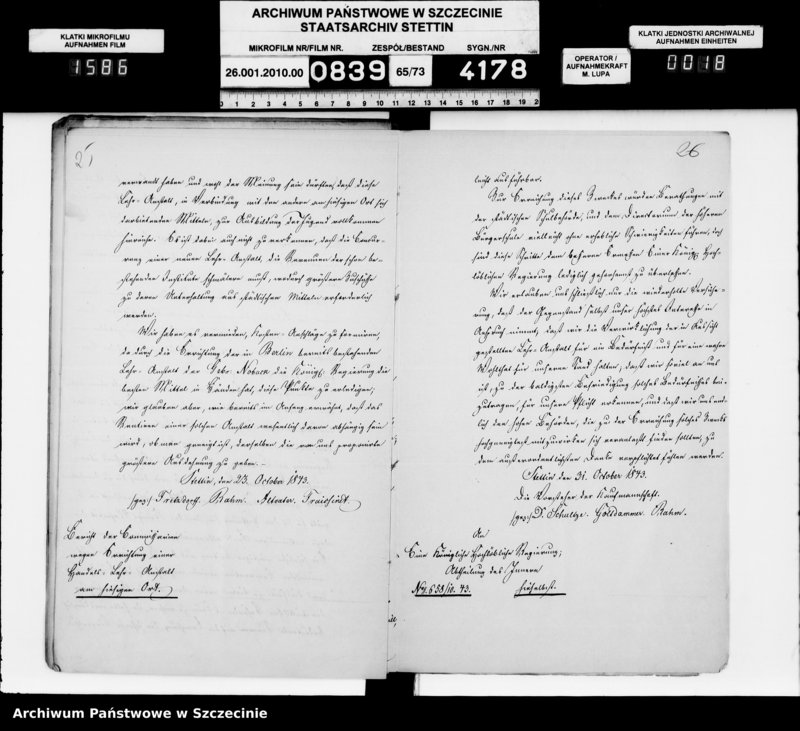 ARCHIWUM PAŃSTWOWE W SZCZECINIE
STAATSARCHIV STETTIN
KLATKI MIKROFILMU
AUFNAHMEN FILM
1586
MIKROFILM NR/FILM NR.
ZESPÓŁ/BESTAND
SYGN./NR
26.001.2010.00
0839
65/73
4178
OPERATOR /
AUFNAHMEKRAFT
M. LUPA
KLATKI JEDNOSTKI ARCHIWALNEJ
AUFNAHMEN EINHEITEN
0018
0 1 2 3 4 5 6 7 8 9 10 11 12 13 14 15 16 17 18 19 20
25
verwandt haben und wohl der Meinung sein dürften, daß diese
Lehr-Anstalt, in Verbindung mit den andern am hiesigen Ort sich
darbietenden Mitteln, zur Ausbildung der Jugend vollkommen
hinreiche. Es ist dabei auch nicht zu verkennen, daß die
einer neuen Lehr-Anstalt, die Revenuen der schon be-
stehenden Institute schmälern muß, wodurch größere Zuschüsse
zu deren Unterhaltung aus städtischen Mitteln erforderlich
werden.
Wir haben es vermieden, Kosten-Anschläge zu formiren,
da durch die Errichtung der in Berlin bereits bestehenden
Lehr-Anstalt der Gebr. Noback die Königl. Regierung die
besten Mittel in Händen hat, diese Punkte zu erledigen;
wir glauben aber, wie bereits im Anfang erwähnt, daß das
Rentiren einer solchen Anstalt wesentlich davon abhängig sein
wird, ob man geneigt ist, derselben die von uns proponirte
größere Ausdehnung zu geben.
Stettin, den 23. October 1843.
(gez.) Fretzdorff. Rahm.
Bericht der Commissarien
wegen Errichtung einer
Handels-Lehr-Anstalt
am hiesigen Ort.
26
leicht ausführbar.
Zur Erreichung dieses Zweckes würden Berathungen mit
der städtischen Schulbehörde, und dem Directorium der höheren
Bürgerschule vielleicht ohne erhebliche Schwierigkeiten führen, doch
sind diese Schritte dem bessern Ermessen Einer Königl. Hoch-
löblichen Regierung lediglich gehorsamst zu überlassen.
Wir erlauben uns schließlich nur die wiederholte Versiche-
rung, daß der Gegenstand selbst unser höchstes Interesse in
Anspruch nimmt, daß wir die Verwirklichung der in Aussicht
gestellten Lehr-Anstalt für ein Bedürfniß und für eine wahre
Wohlthat für unseren Stand halten, daß wir soviel an uns
ist, zu der baldigsten Befriedigung solches Bedürfnisses bei-
zutragen, für unsere Pflicht erkennen, und daß wir uns end-
lich den hohen Behörden, die zu der Erreichung solches Zwecks
hochgeneigtest mitzuwirken sich veranlaßt finden sollten, zu
dem außerordentlichsten Danke verpflichtet fühlen werden.
Stettin den 31. October 1843.
Die Vorsteher der Kaufmannschaft.
(gez.) D. Schultze. Goltdammer. Rahm.
An
Eine Königliche Hochlöbliche Regierung;
Abtheilung des Innern
No. 658/10. 43.
hieselbst.
Archiwum Państwowe w Szczecinie